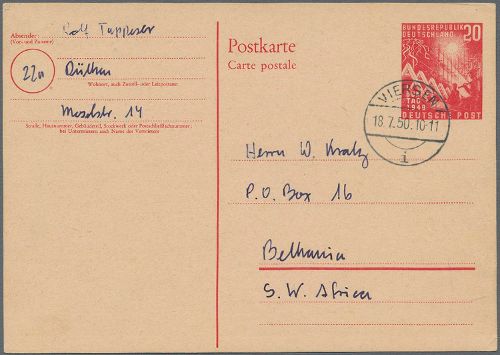 Absender:
(Vor- und Zuname)
Rolf Tappeser
22a
Dülken
Wohnort, auch Zustell- oder Leitpostamt
Moselstr. 14
Straße, Hausnummer, Gebäudeteil, Stockwerk oder Postschließfachnummer;
bei Untermietern auch Name des Vermieters
Postkarte
Carte postale
BUNDESREPUBLIK
DEUTSCHLAND
20
TAG
1949
DEUTSCHE POST
VIERSEN
18.7.50.10-11
i
Herrn W. Kratz
P.O. Box 16
Bethania
S.W. Africa